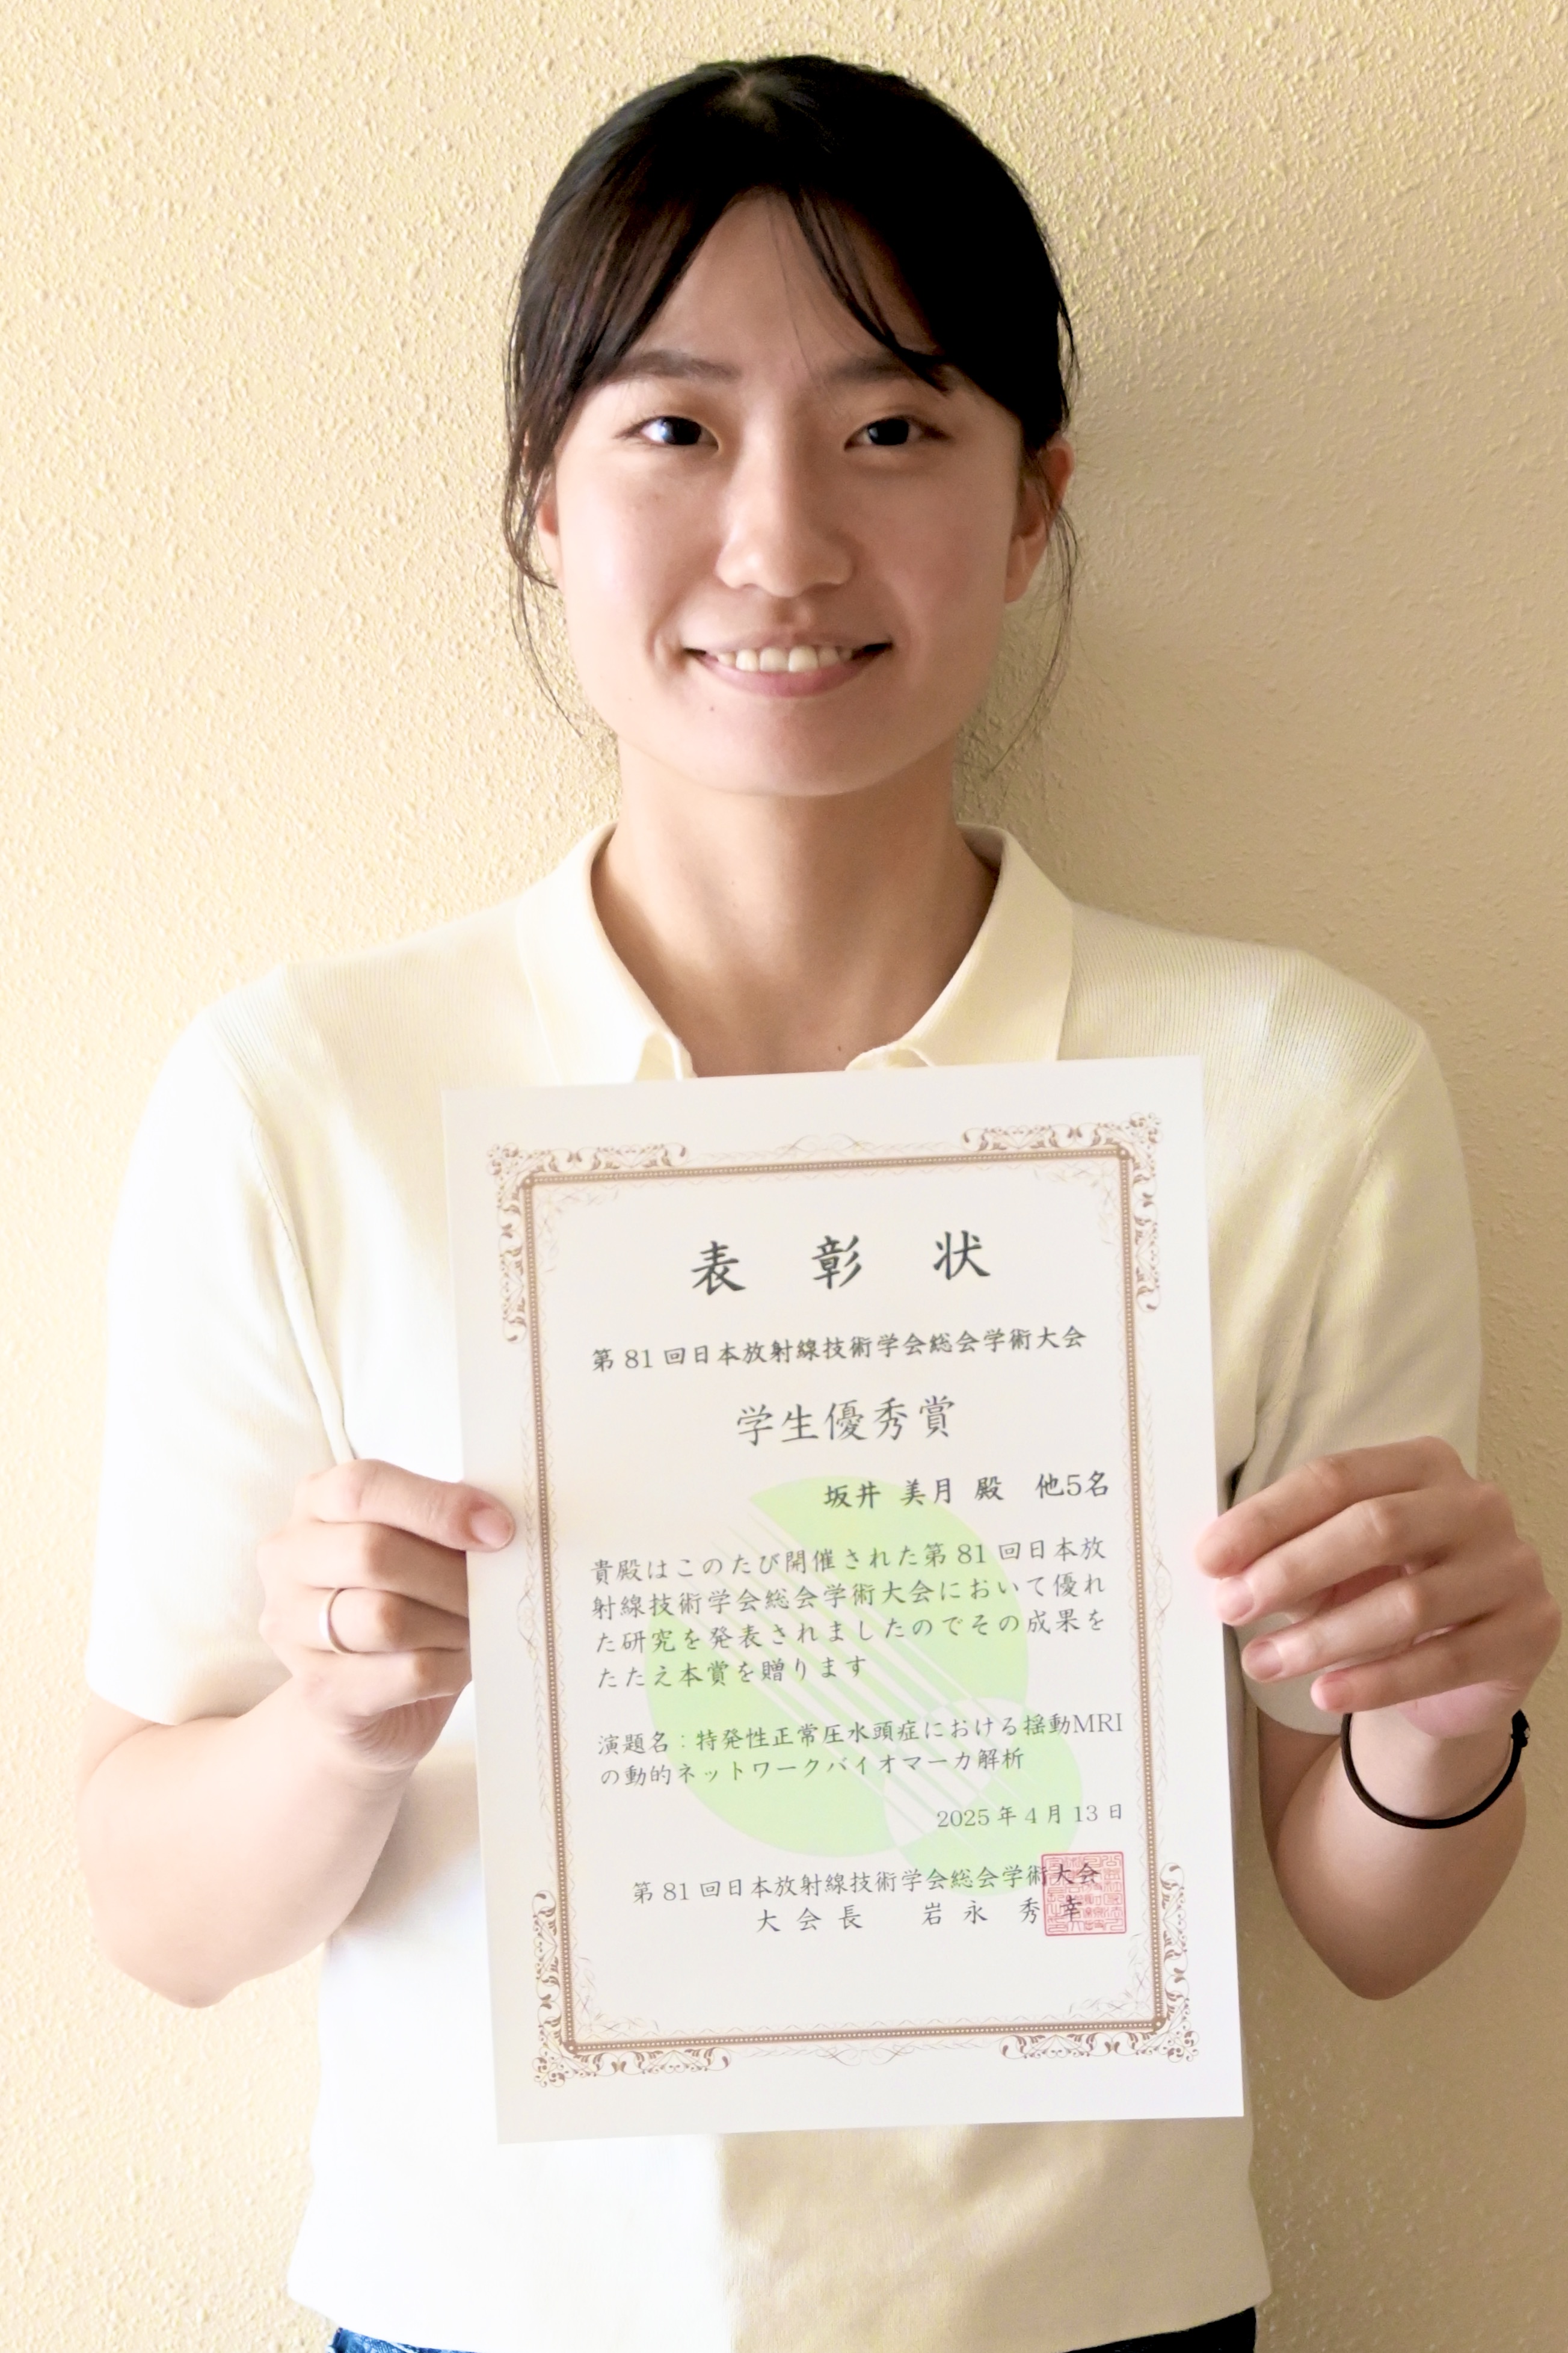 表彰状
第81回日本放射線技術学会総会学術大会
学生優秀賞
坂井 美月 殿 他5名
貴殿はこのたび開催された第81回日本放
射線技術学会総会学術大会において優れ
た研究を発表されましたのでその成果を
たたえ本賞を贈ります
演題名：特発性正常圧水頭症における揺動MRI
の動的ネットワークバイオマーカ解析
2025年4月13日
第81回日本放射線技術学会総会学術大会
大会長 岩永 秀幸